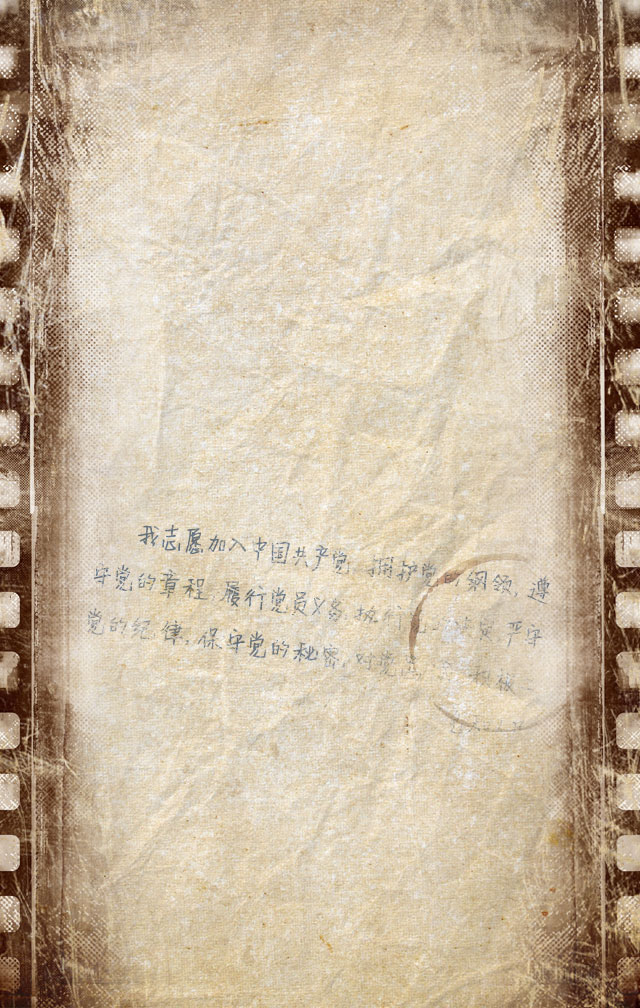 我志愿加入中国共产党,拥护党的纲领,遵
守党的章程,履行党员义务,执行 决定,严守
党的纪律,保守党的秘密,对党